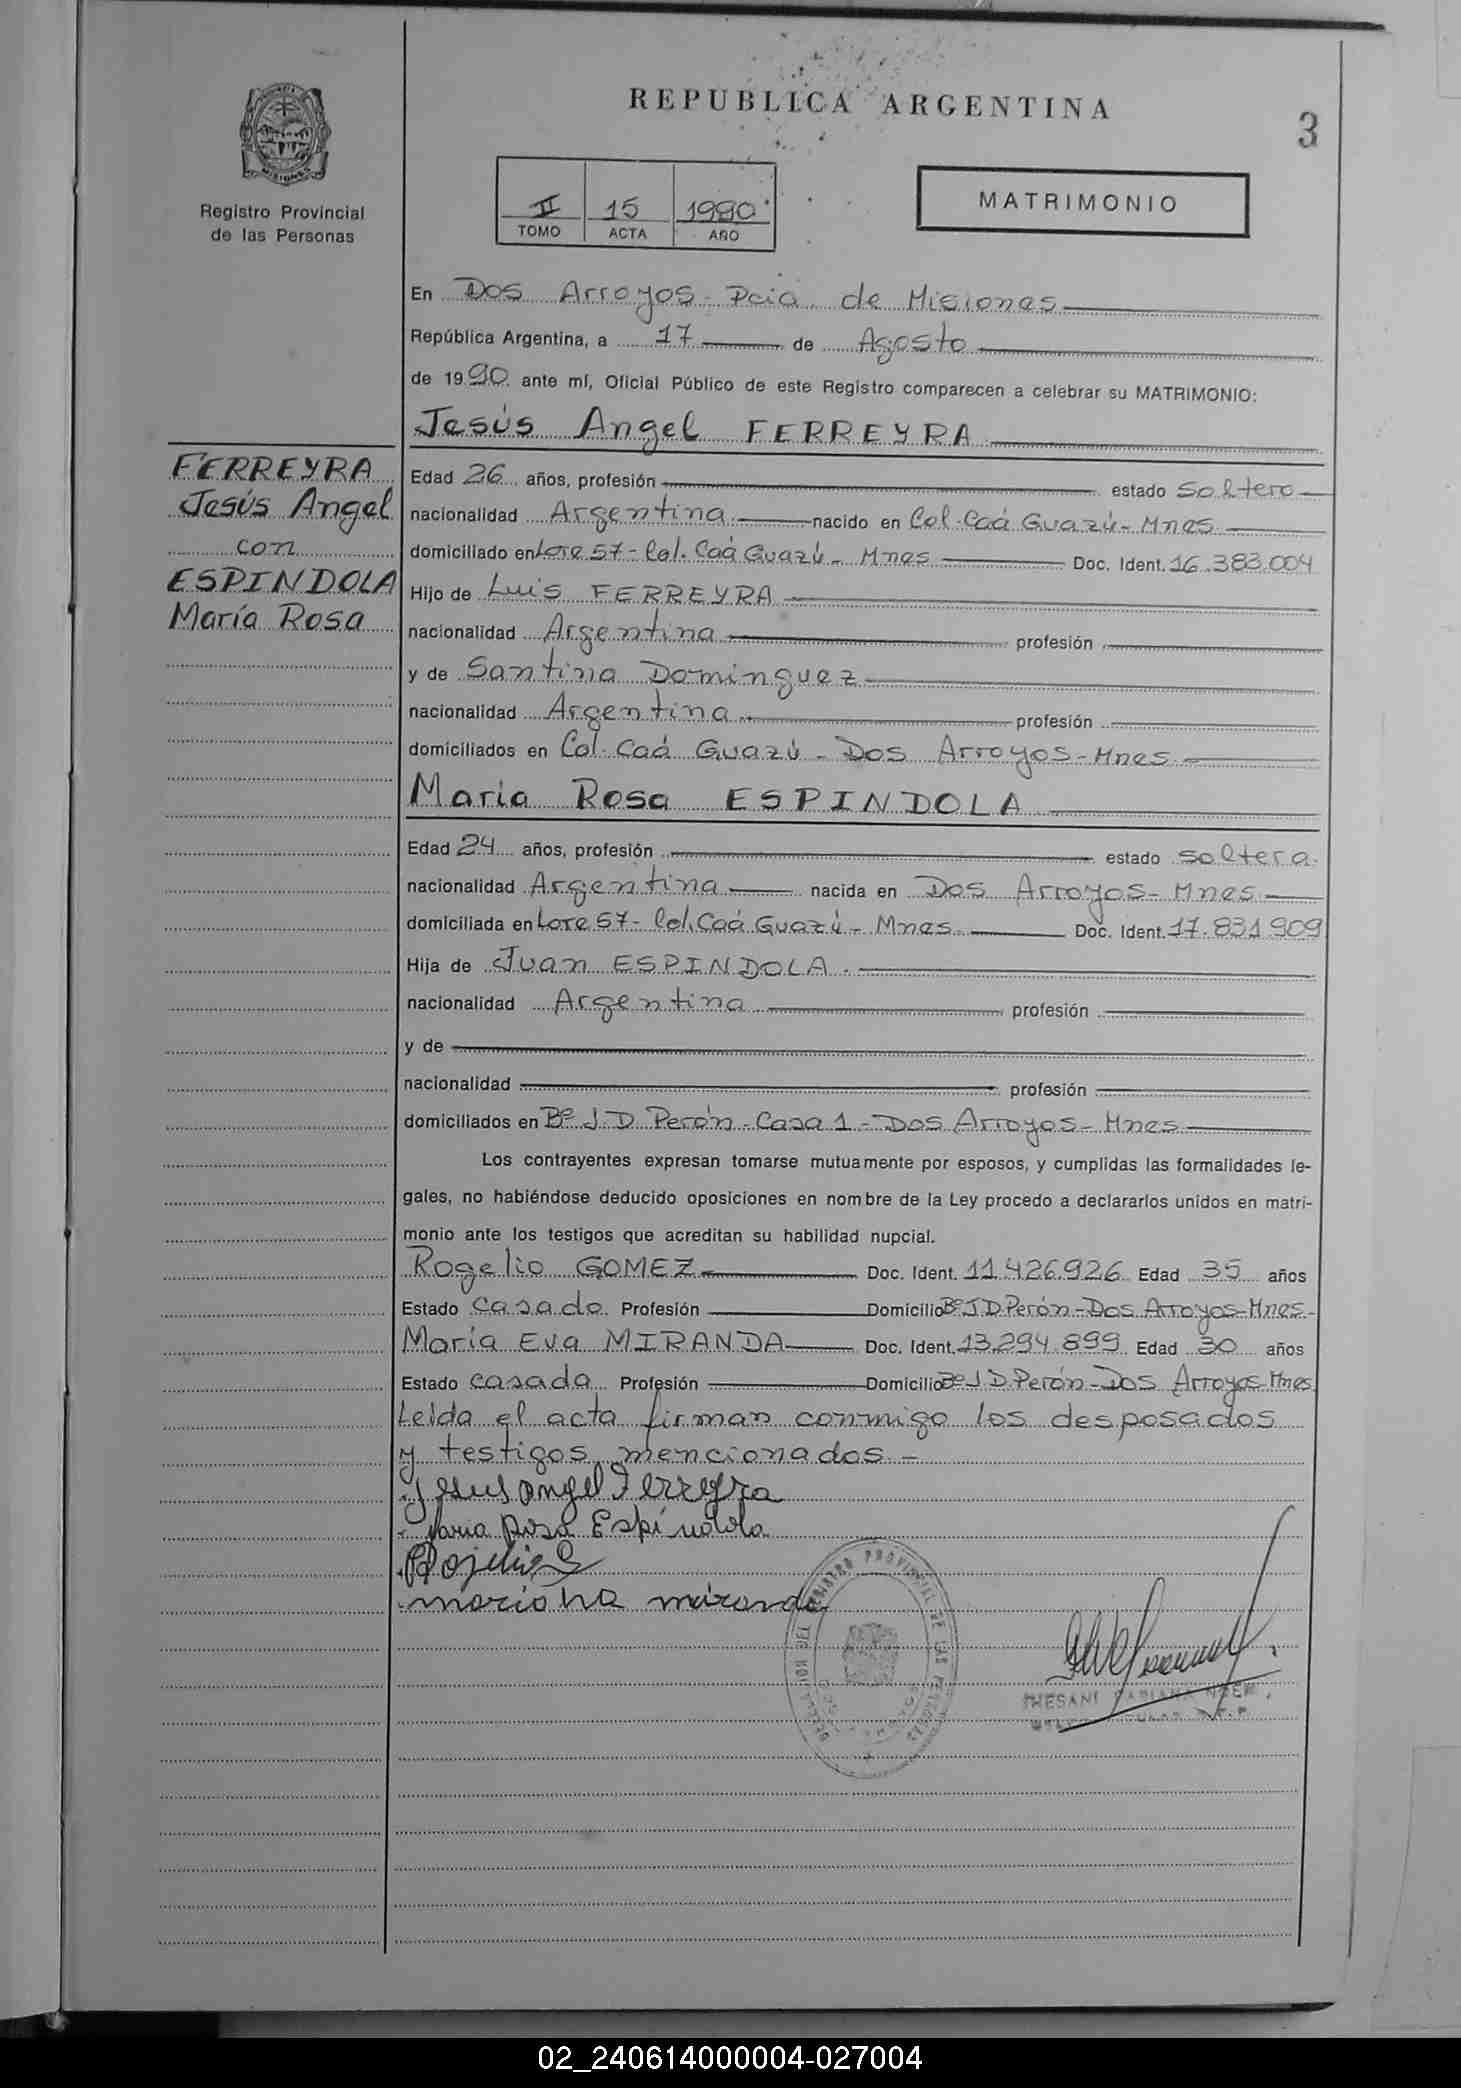 REPUBLICA ARGENTINA
3
MISIONES
Registro Provincial
de las Personas
II 15 1990
TOMO ACTA AÑO
MATRIMONIO
En Dos Arroyos - Pcia. de Misiones
República Argentina, a 17 de Agosto
de 1990 ante mí, Oficial Público de este Registro comparecen a celebrar su MATRIMONIO:
Jesús Angel FERREYRA
FERREYRA
Jesús Angel
con
ESPINDOLA
María Rosa
Edad 26 años, profesión estado soltero
nacionalidad Argentina nacido en Col. Caá Guazú - Mnes
domiciliado en Lote 57 - Col. Caá Guazú - Mnes Doc. Ident. 16.383.004
Hijo de Luis FERREYRA
nacionalidad Argentina profesión
y de Santina Dominguez
nacionalidad Argentina profesión
domiciliados en Col. Caá Guazú - Dos Arroyos - Mnes
María Rosa ESPINDOLA
Edad 24 años, profesión estado soltera
nacionalidad Argentina nacida en Dos Arroyos - Mnes
domiciliada en Lote 57 - Col. Caá Guazú - Mnes Doc. Ident. 17.831.909
Hija de Juan ESPINDOLA
nacionalidad Argentina profesión
y de
nacionalidad profesión
domiciliados en Bº J. D. Perón - Casa 1 - Dos Arroyos - Mnes
Los contrayentes expresan tomarse mutuamente por esposos, y cumplidas las formalidades le-
gales, no habiéndose deducido oposiciones en nombre de la Ley procedo a declararlos unidos en matri-
monio ante los testigos que acreditan su habilidad nupcial.
Rogelio GOMEZ Doc. Ident. 11.426.926 Edad 35 años
Estado casado Profesión Domicilio Bº J. D. Perón - Dos Arroyos - Mnes -
María Eva MIRANDA Doc. Ident. 13.294.899 Edad 30 años
Estado casada Profesión Domicilio Bº J. D. Perón - Dos Arroyos - Mnes
Leída el acta firman conmigo los desposados
y testigos mencionados -
Jesus Angel Ferreyra
Maria Rosa Espíndola
Rojelio G
maria miranda
DELEGACION DEL REGISTRO PROVINCIAL DE LAS PERSONAS
THESANI FABIANA
02_240614000004-027004